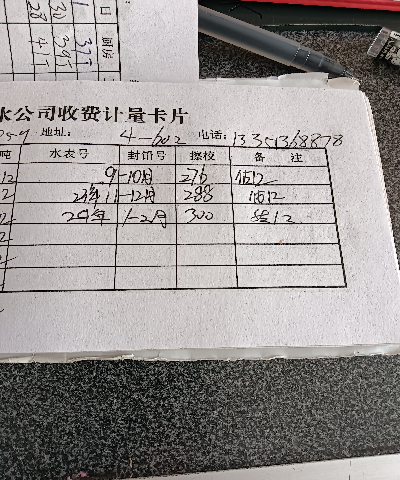 水公司收费计量卡片
地址: 4-602 电话: 13351368878
吨 水表号 封铅号 擦校 备注
12 9-10月 276 估12
2 23年11-12月 288 估12
12 24年 1-2月 300 12